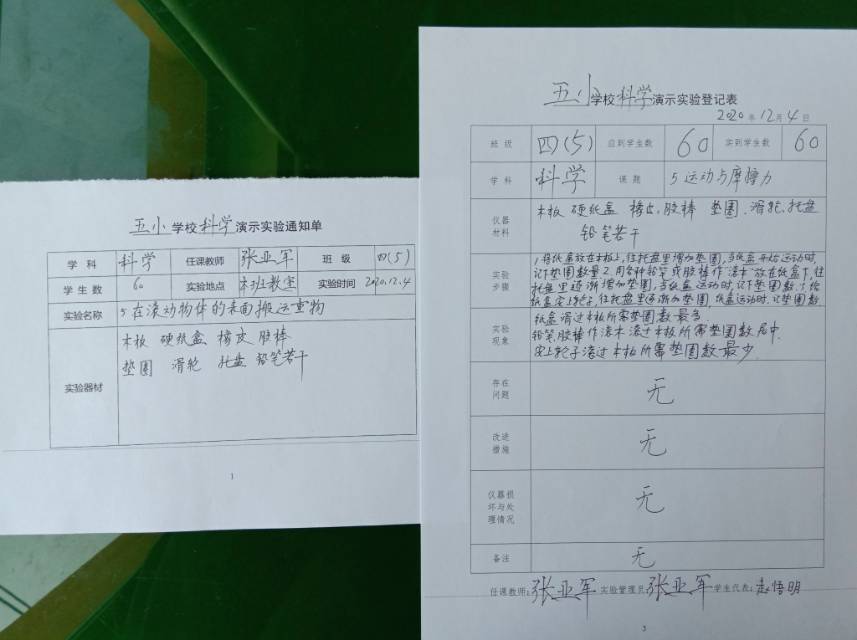 五小学校科学演示实验通知单
学科 科学 任课教师 张亚军 班级 四(5)
学生数 60 实验地点 本班教室 实验时间 2020.12.4
实验名称 5在滚动物体的表面搬运重物
实验器材 木板 硬纸盒 橡皮 胶棒
垫圈 滑轮 托盘 铅笔若干
1
五小学校科学演示实验登记表
2020年12月4日
班级 四(5) 应到学生数 60 实到学生数 60
学科 科学 课题 5运动与摩擦力
仪器材料 木板 硬纸盒 橡皮,胶棒 垫圈 滑轮,托盘
铅笔若干
实验步骤 1.将纸盒放在木板上,往托盘里增加垫圈,当纸盒开始运动时,
记下垫圈数量2.用几种铅笔或胶棒作"滚木"放在纸盒下,往
托盘里逐渐增加垫圈,当纸盒运动时,记下垫圈数.3.给
纸盒安上轮子,往托盘里逐渐加垫圈,纸盒运动时,记垫圈数
实验现象 纸盒滑过木板所需垫圈数最多.
铅笔,胶棒作滚木滚过木板所需垫圈数居中.
安上轮子滚过木板所需垫圈数最少.
存在问题 无
改进措施 无
仪器损坏与处理情况 无
备注 无
任课教师:张亚军 实验管理员:张亚军 学生代表:赵悟明
3